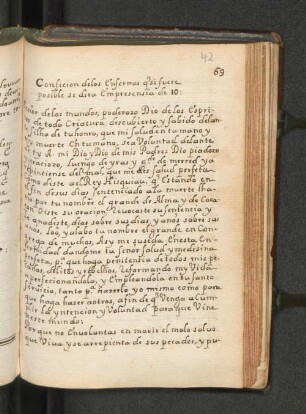 42
69
Confecion delos Enfermos q̃ si fuere
posible se dira Empresensia de 10:
delos mundos, poderoso Dio delos Espri-
de toda Criatura descubierto, y sabido delan-
silha de tu honrra, que mi salud en tu mano y
muerte En tu mano, sea Voluntad delante
ti A. mi Dio y Dio de mis Padres Dio piadoso
gracioso, luengo de yras y q̃ de merced ya
del mal, que me des salud perfeta
diste al Rey Hisquiau, q̃ Estando en
de sus dias sentenciado a la muerte lha-
por tu nombre el grande de Alma y de Cora-
Diste su oracion Revocaste su sentencia y
anadiste dias sobre sus dias, y anos sobre sus
anos, loo, y alabo tu nombre el grande en Con-
grega de muchos, Assy me suseda Enesta En-
dandome tu senor Salud y medesina
perfeta, p.ª que haga penitencia de todos mis pe-
cados, delitos y rebelhos, Reformando my Vida
perfecionandola, y Empleandola En tu santo
servicio, tanto p.ª hazerlo yo mismo como para
que haga haser aotros, afin de q̃ Venga a Cum-
plir la yntencion y Voluntad Para que Vine
a este mundo:
Porque no Envoluntas en morir el malo salvo
que Viva y se arrepienta de sus pecados, y pu-